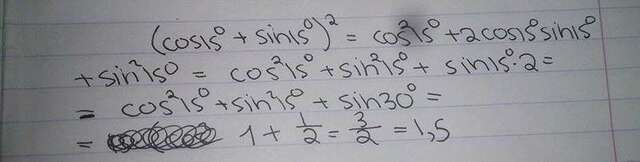 (cos15° + sin15°)² = cos²15° + 2cos15°sin15°
+ sin²15° = cos²15° + sin²15° + sin15°·2 =
= cos²15° + sin²15° + sin30° =
= 1 + 1/2 = 3/2 = 1,5